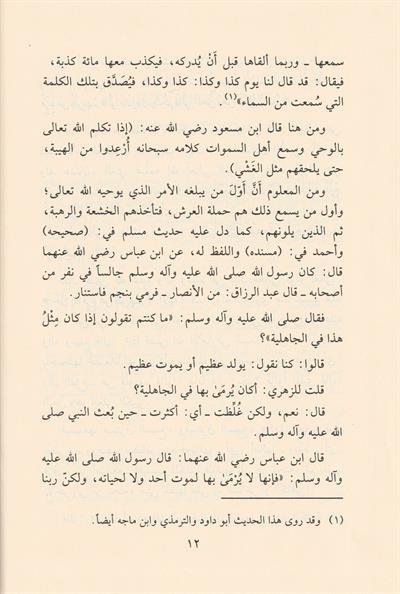 سمعها ـ وربما ألقاها قبل أَنْ يُدركه، فيكذب معها مائة كذبة،
فيقال: قد قال لنا يوم كذا وكذا: كذا وكذا، فيُصَدَّق بتلك الكلمة
التي سُمعت من السماء»(١).
ومن هنا قال ابن مسعود رضي الله عنه: (إذا تكلم الله تعالى
بالوحي وسمع أهل السموات كلامه سبحانه أُرْعِدوا من الهيبة،
حتى يلحقهم مثل الغَشْي).
ومن المعلوم أَنَّ أَوّلَ من يبلغه الأمر الذي يوحيه الله تعالى؛
وأول من يسمع ذلك هم حملة العرش، فتأخذهم الخشعة والرهبة،
ثم الذين يلونهم، كما دل عليه حديث مسلم في: (صحيحه)
وأحمد في: (مسنده) واللفظ له، عن ابن عباس رضي الله عنهما
قال: كان رسول الله صلى الله عليه وآله وسلم جالساً في نفر من
أصحابه ـ قال عبد الرزاق: من الأنصار ـ فرمي بنجم فاستنار.
فقال صلى الله عليه وآله وسلم: «ما كنتم تقولون إذا كان مِثْلُ
هذا في الجاهلية»؟
قالوا: كنا نقول: يولد عظيم أو يموت عظيم.
قلت للزهري: أكان يُرمَىٰ بها في الجاهلية؟
قال: نعم، ولكن غُلِّظت ـ أي: أكثرت ـ حين بُعث النبي صلى
الله عليه وآله وسلم.
قال ابن عباس رضي الله عنهما: قال رسول الله صلى الله عليه
وآله وسلم: «فإنها لا يُرْمَىٰ بها لموت أحد ولا لحياته، ولكنّ ربنا
(١) وقد روى هذا الحديث أبو داود والترمذي وابن ماجه أيضاً.
١٢